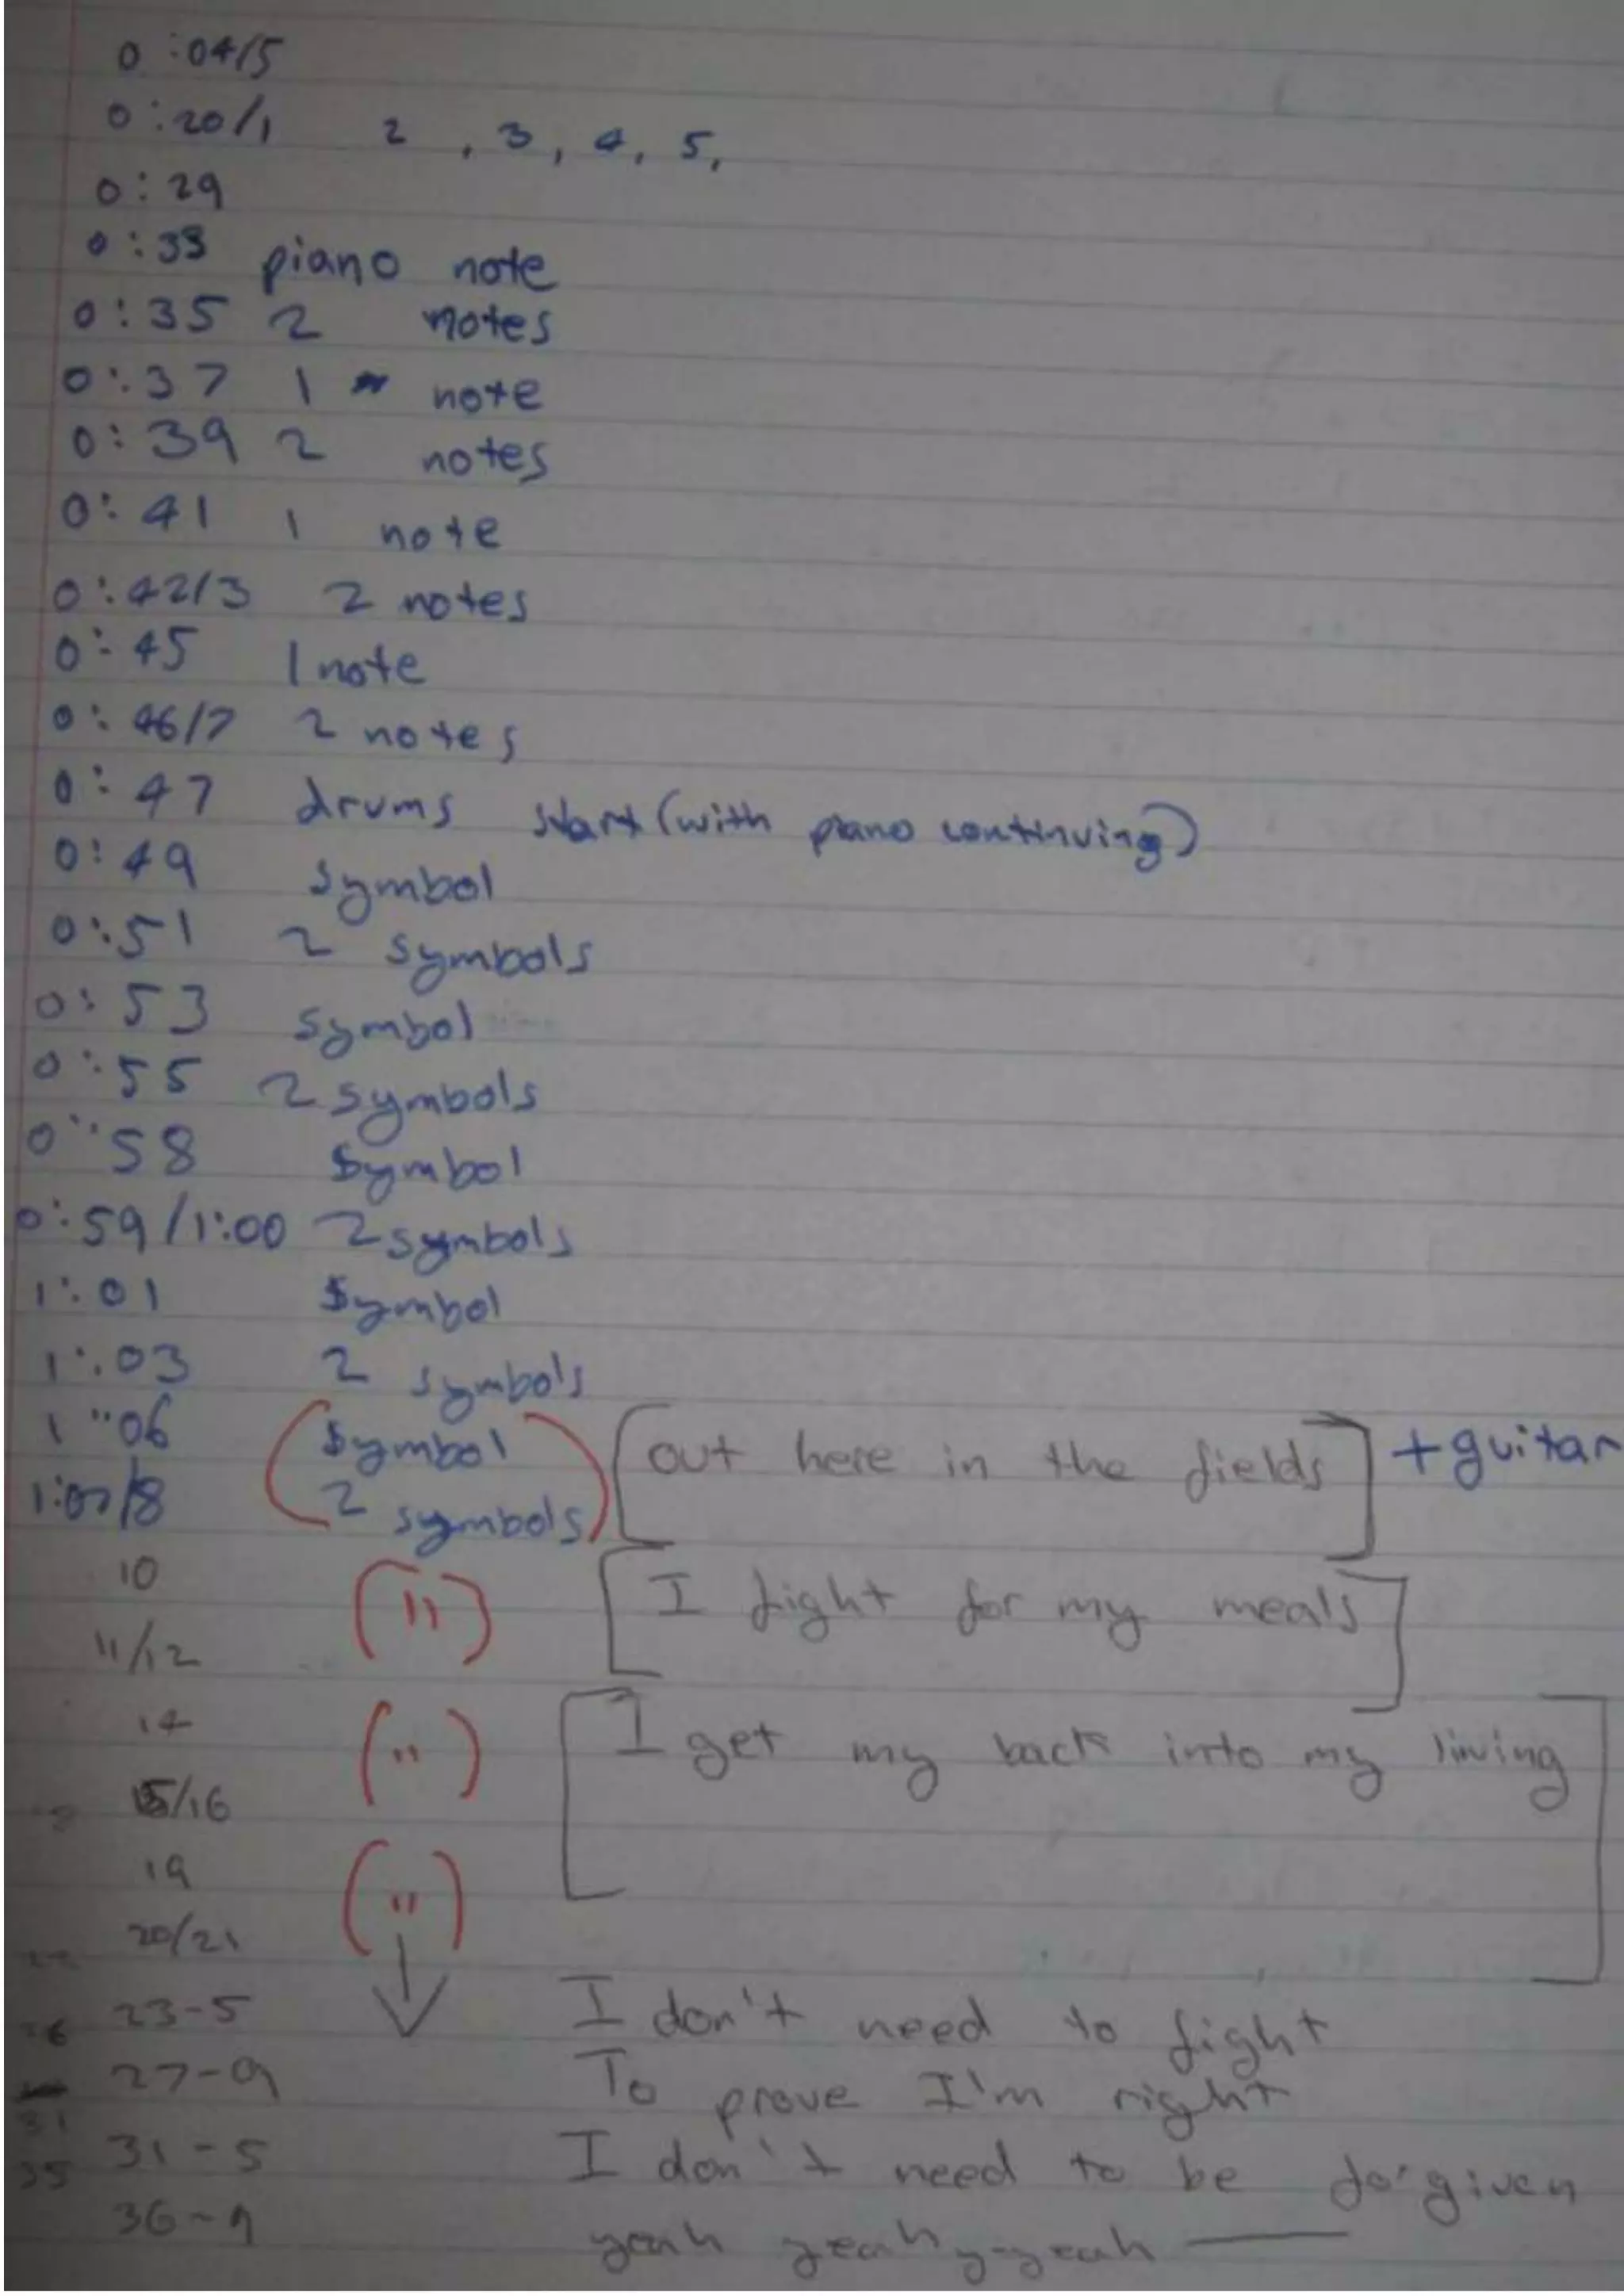 0:04/5
0:20/1 2, 3, 4, 5,
0:29
0:33 piano note
0:35 2 notes
0:37 1 note
0:39 2 notes
0:41 1 note
0:42/3 2 notes
0:45 1 note
0:46/7 2 notes
0:47 drums start (with piano continuing)
0:49 symbol
0:51 2 symbols
0:53 symbol
0:55 2 symbols
0:58 symbol
0:59/1:00 2 symbols
1:01 symbol
1:03 2 symbols
1:06 (symbol [out here in the fields] + guitar
1:07/8 2 symbols)
10 (") [I fight for my meals]
11/12
14 (") [I get my back into my living]
15/16
19 (")
20/21
23-5 I don't need to fight
26
27-9 To prove I'm right
31
31-5 I don't need to be forgiven
35
36-9 yeah yeah y-yeah